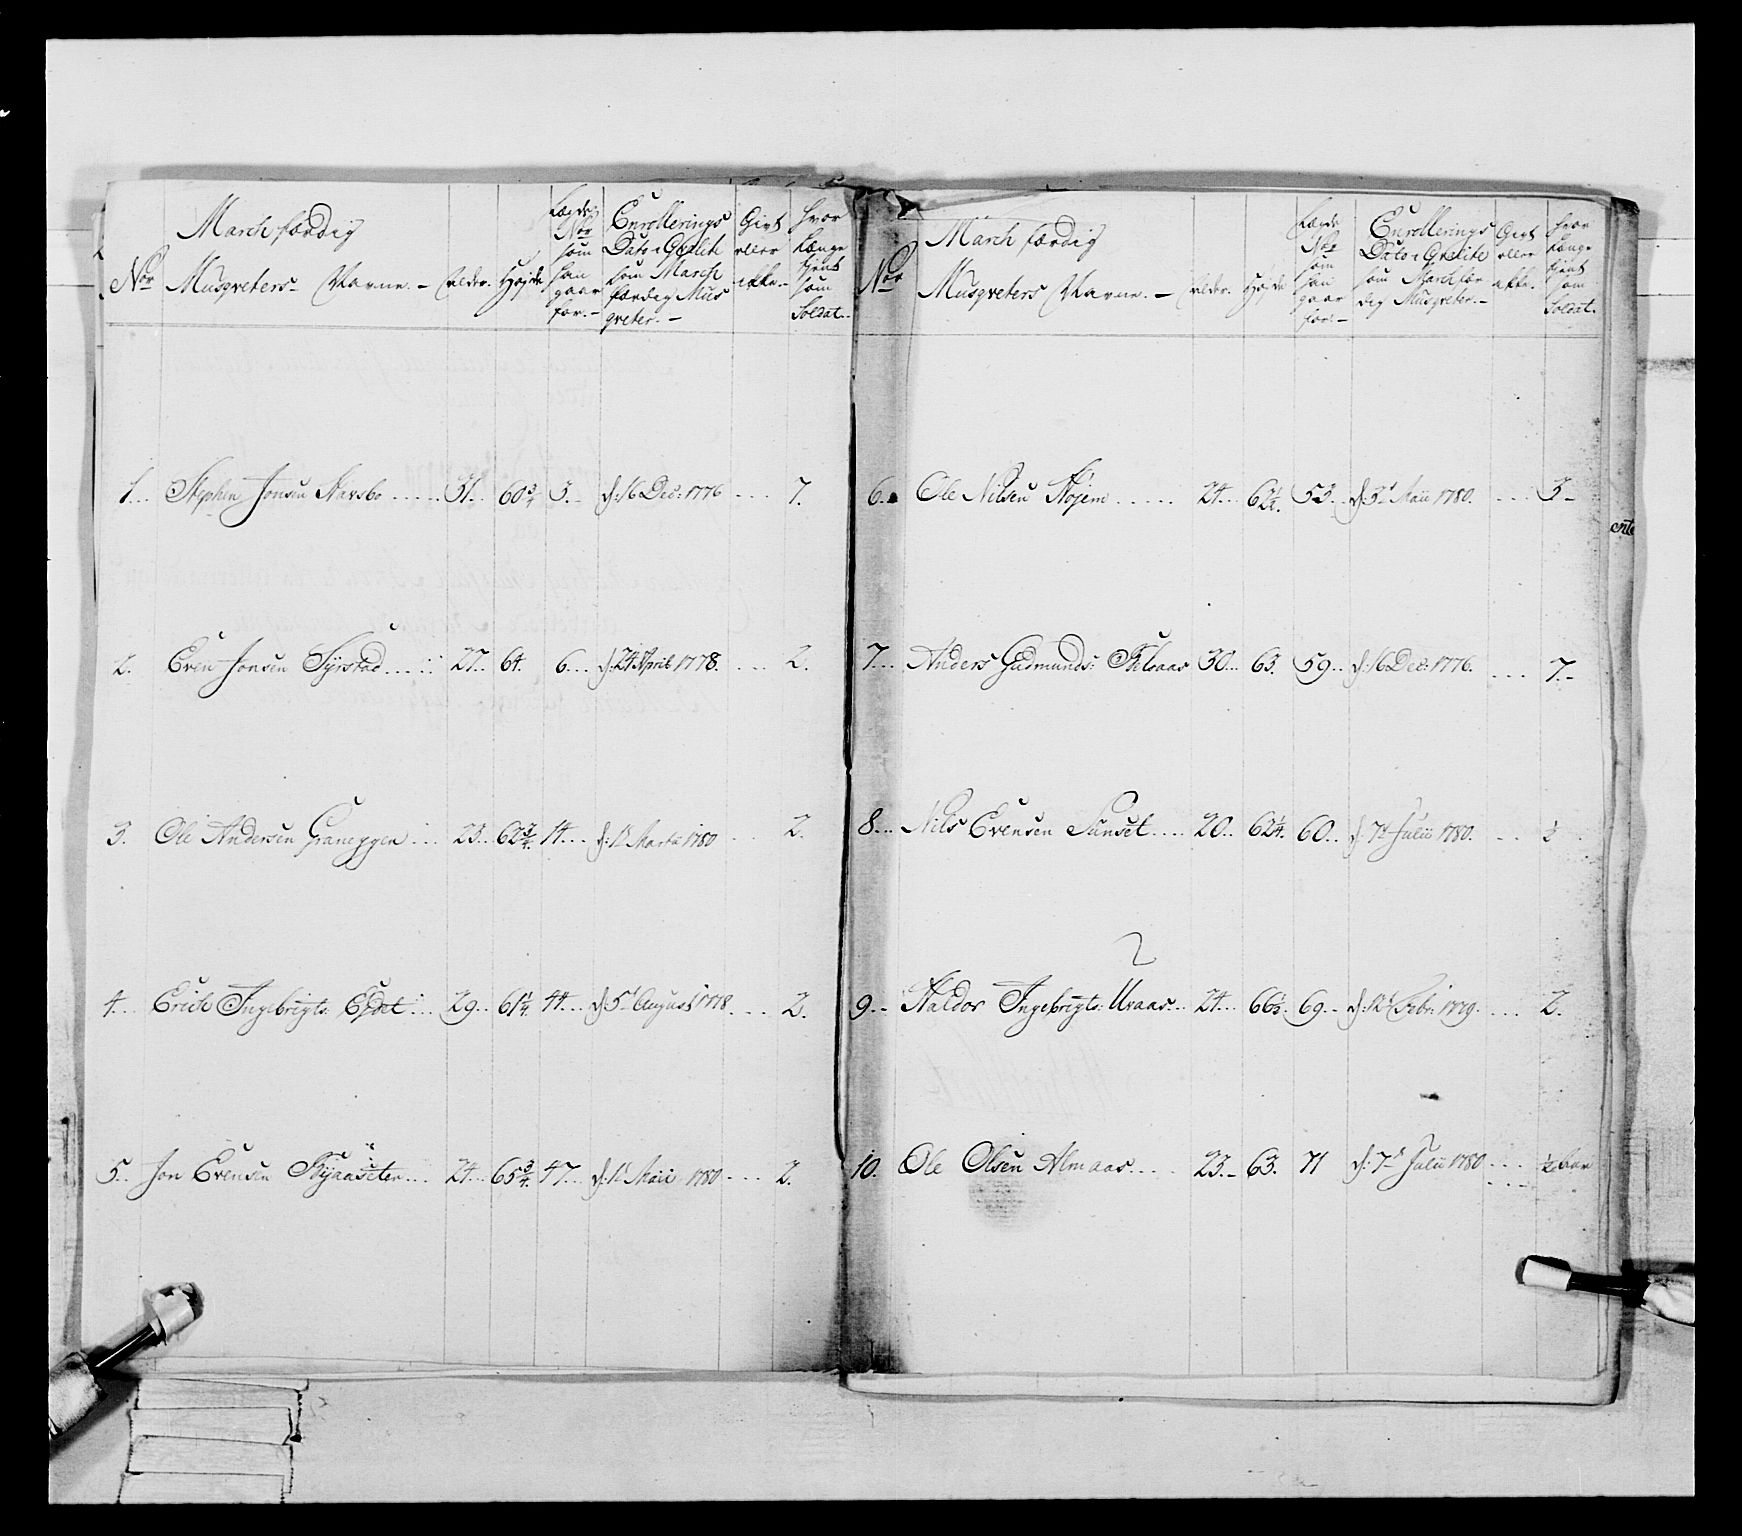 March færdig
Nor Musqveters Navne. – Alder. Højde
Lægds
Nor
som
han
gaar
for. –
Enrollerings
Dato i Qvalite
som March
færdig Mus
qveter. –
Givt
eller
ikke. –
Hvor
Længe
tjent
som
Soldat.
1... Stephen Jonsen Stavsbo ..... 31.. 60 3/4 3. d: 16 Dec: 1776 ... 7.
2. Even Jonsen Syrstad ..... 27.. 64. 6... d: 24 April 1778. ... 2.
3. Ole Andersen Graneggen ... 23.. 62 3/4. 14... d: 1t Martii 1780 . 2.
4... Erich Ingebrigts: Egdal ... 29.. 61 1/4 44... d: 5t August 1778. ... 2.
5.. Jon Evensen ... 24... 65 3/4. 47... d: 1t Maii 1780 ... 2.
March færdig
Nor Musqveters Navne. – Alder. Højde
Lægds
Nor
som
han
gaar
for. –
Enrollerings
Dato i Qvalite
som March fær
dig Musqveter. –
Givt
eller
ikke.
Hvor
Længe
tjent
som
Soldat.
6.. Ole Nilsen Højem ..... 24... 62 1/4. 53.. d: 3t Maii 1780. ... 3 –
7... Anders Gudmunds: 30... 63. 59.. d: 16 Dec: 1776. ... 7. –
8... Nils Evensen Sunset .... 20.. 62 1/4. 60.. d: 7t Julii 1780. ... 1/2
9.. Haldor Ingebrigts: Uraas... 24... 66 1/2. 69.. d: 12t Febr: 1779. ... 2.
10. Ole Olsen Almaas .... 23. – 63. 71 d: 7t Julii 1780 .... 1/2 aar